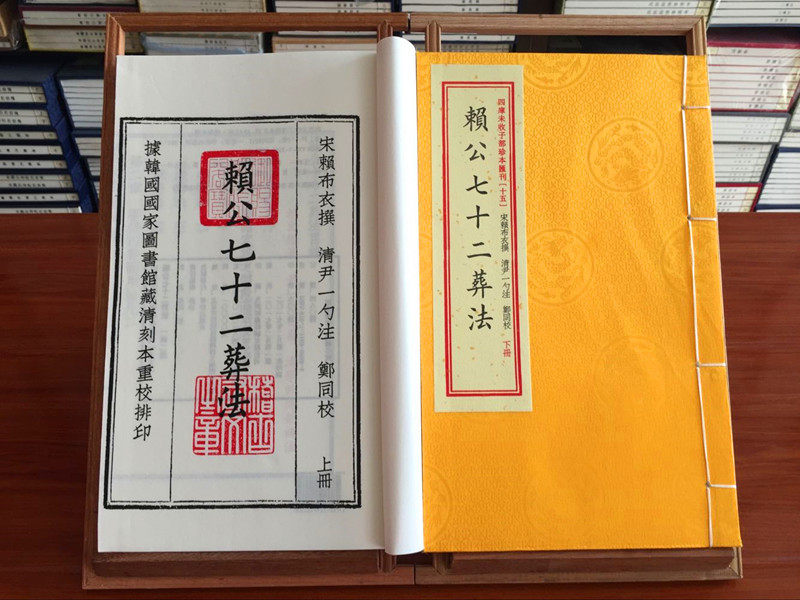 四庫未收子部珍本匯刊〔十五〕
賴公七十二葬法
宋賴布衣撰 清尹一勺注 鄭同校 下冊
宋賴布衣撰 清尹一勺注 鄭同校 上冊
賴公七十二葬法
據韓國國家圖書館藏清刻本重校排印